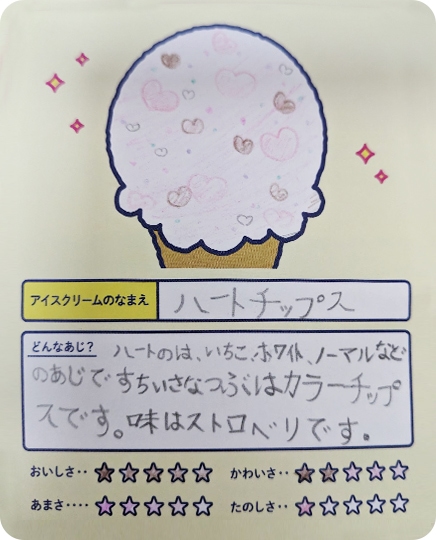 アイスクリームのなまえ ハートチップス
どんなあじ? ハートのは、いちご、ホワイト、ノーマルなど
のあじですちいさなつぶはカラーチップ
スです。味はストロベリです。
おいしさ‥ ☆☆☆☆☆ かわいさ‥ ☆☆☆☆☆
あまさ‥‥ ☆☆☆☆☆ たのしさ‥ ☆☆☆☆☆